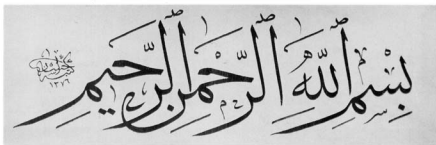 بِسْمِ اللهِ الرَّحْمٰنِ الرَّحِيمِ
١٣٧٦